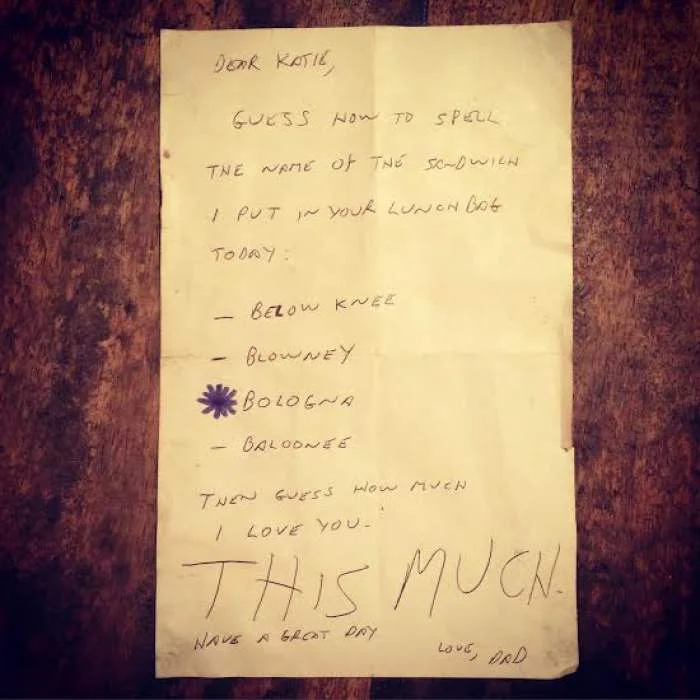 DEAR KATIE,
GUESS HOW TO SPELL
THE NAME OF THE SANDWICH
I PUT IN YOUR LUNCH BAG
TODAY:
- BELOW KNEE
- BLOWNEY
BOLOGNA
- BALOONEE
THEN GUESS HOW MUCH
I LOVE YOU.
THIS MUCH.
HAVE A GREAT DAY
LOVE, DAD